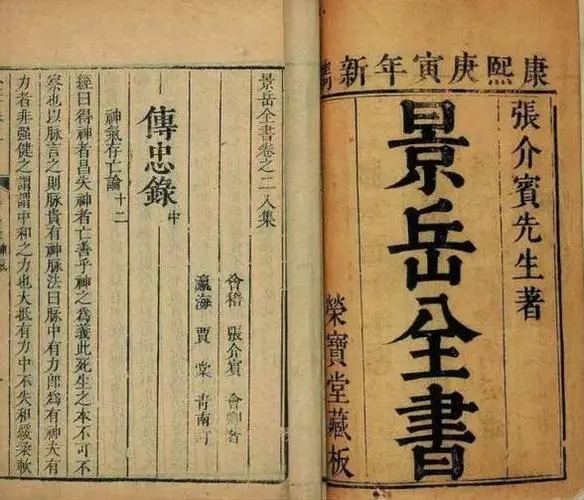 康熙庚寅年新鐫
張介賓先生著
景岳全書
榮寶堂藏板
景岳全書卷之二入集
會稽 張介賓 會卿著
瀛海 賈棠 青南
傳忠錄 中
神氣存亡論 十二
經曰得神者昌失神者亡善乎神之為義此死生之本不可不
察也以脉言之則脉貴有神脉法曰脉中有力即為有神夫有
力者非强健之謂謂中和之力也大抵有力中不失和緩柔軟